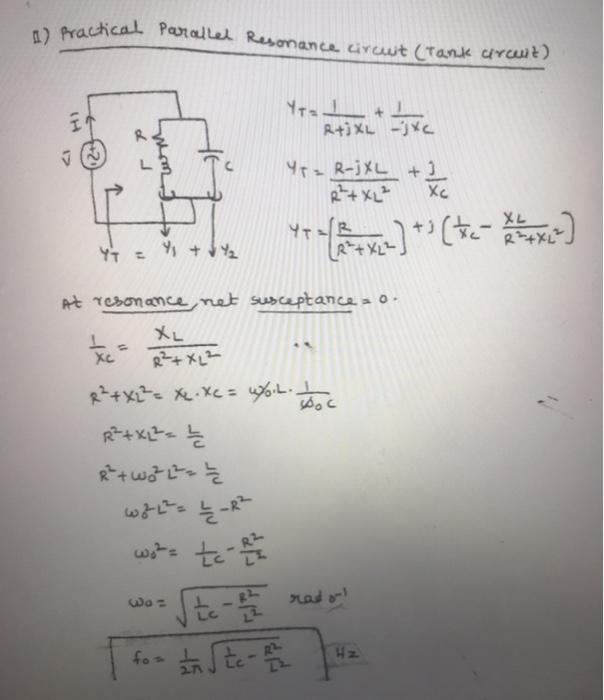 II) Practical Parallel Resonance circuit (Tank circuit)
Ī
V̄
R
L
C
YT = Y1 + Y2
YT = 1/(R+jXL) + 1/(-jXC)
YT = (R-jXL)/(R²+XL²) + j/XC
YT = (R/(R²+XL²)) + j(1/XC - XL/(R²+XL²))
At resonance, net susceptance = 0.
1/XC = XL/(R²+XL²)
R²+XL² = XL.XC = ω0.L. 1/(ω0C)
R²+XL² = L/C
R²+ω0²L² = L/C
ω0²L² = L/C - R²
ω0² = 1/LC - R²/L²
ω0 = √(1/LC - R²/L²) rad s⁻¹
f0 = 1/2π √(1/LC - R²/L²) Hz